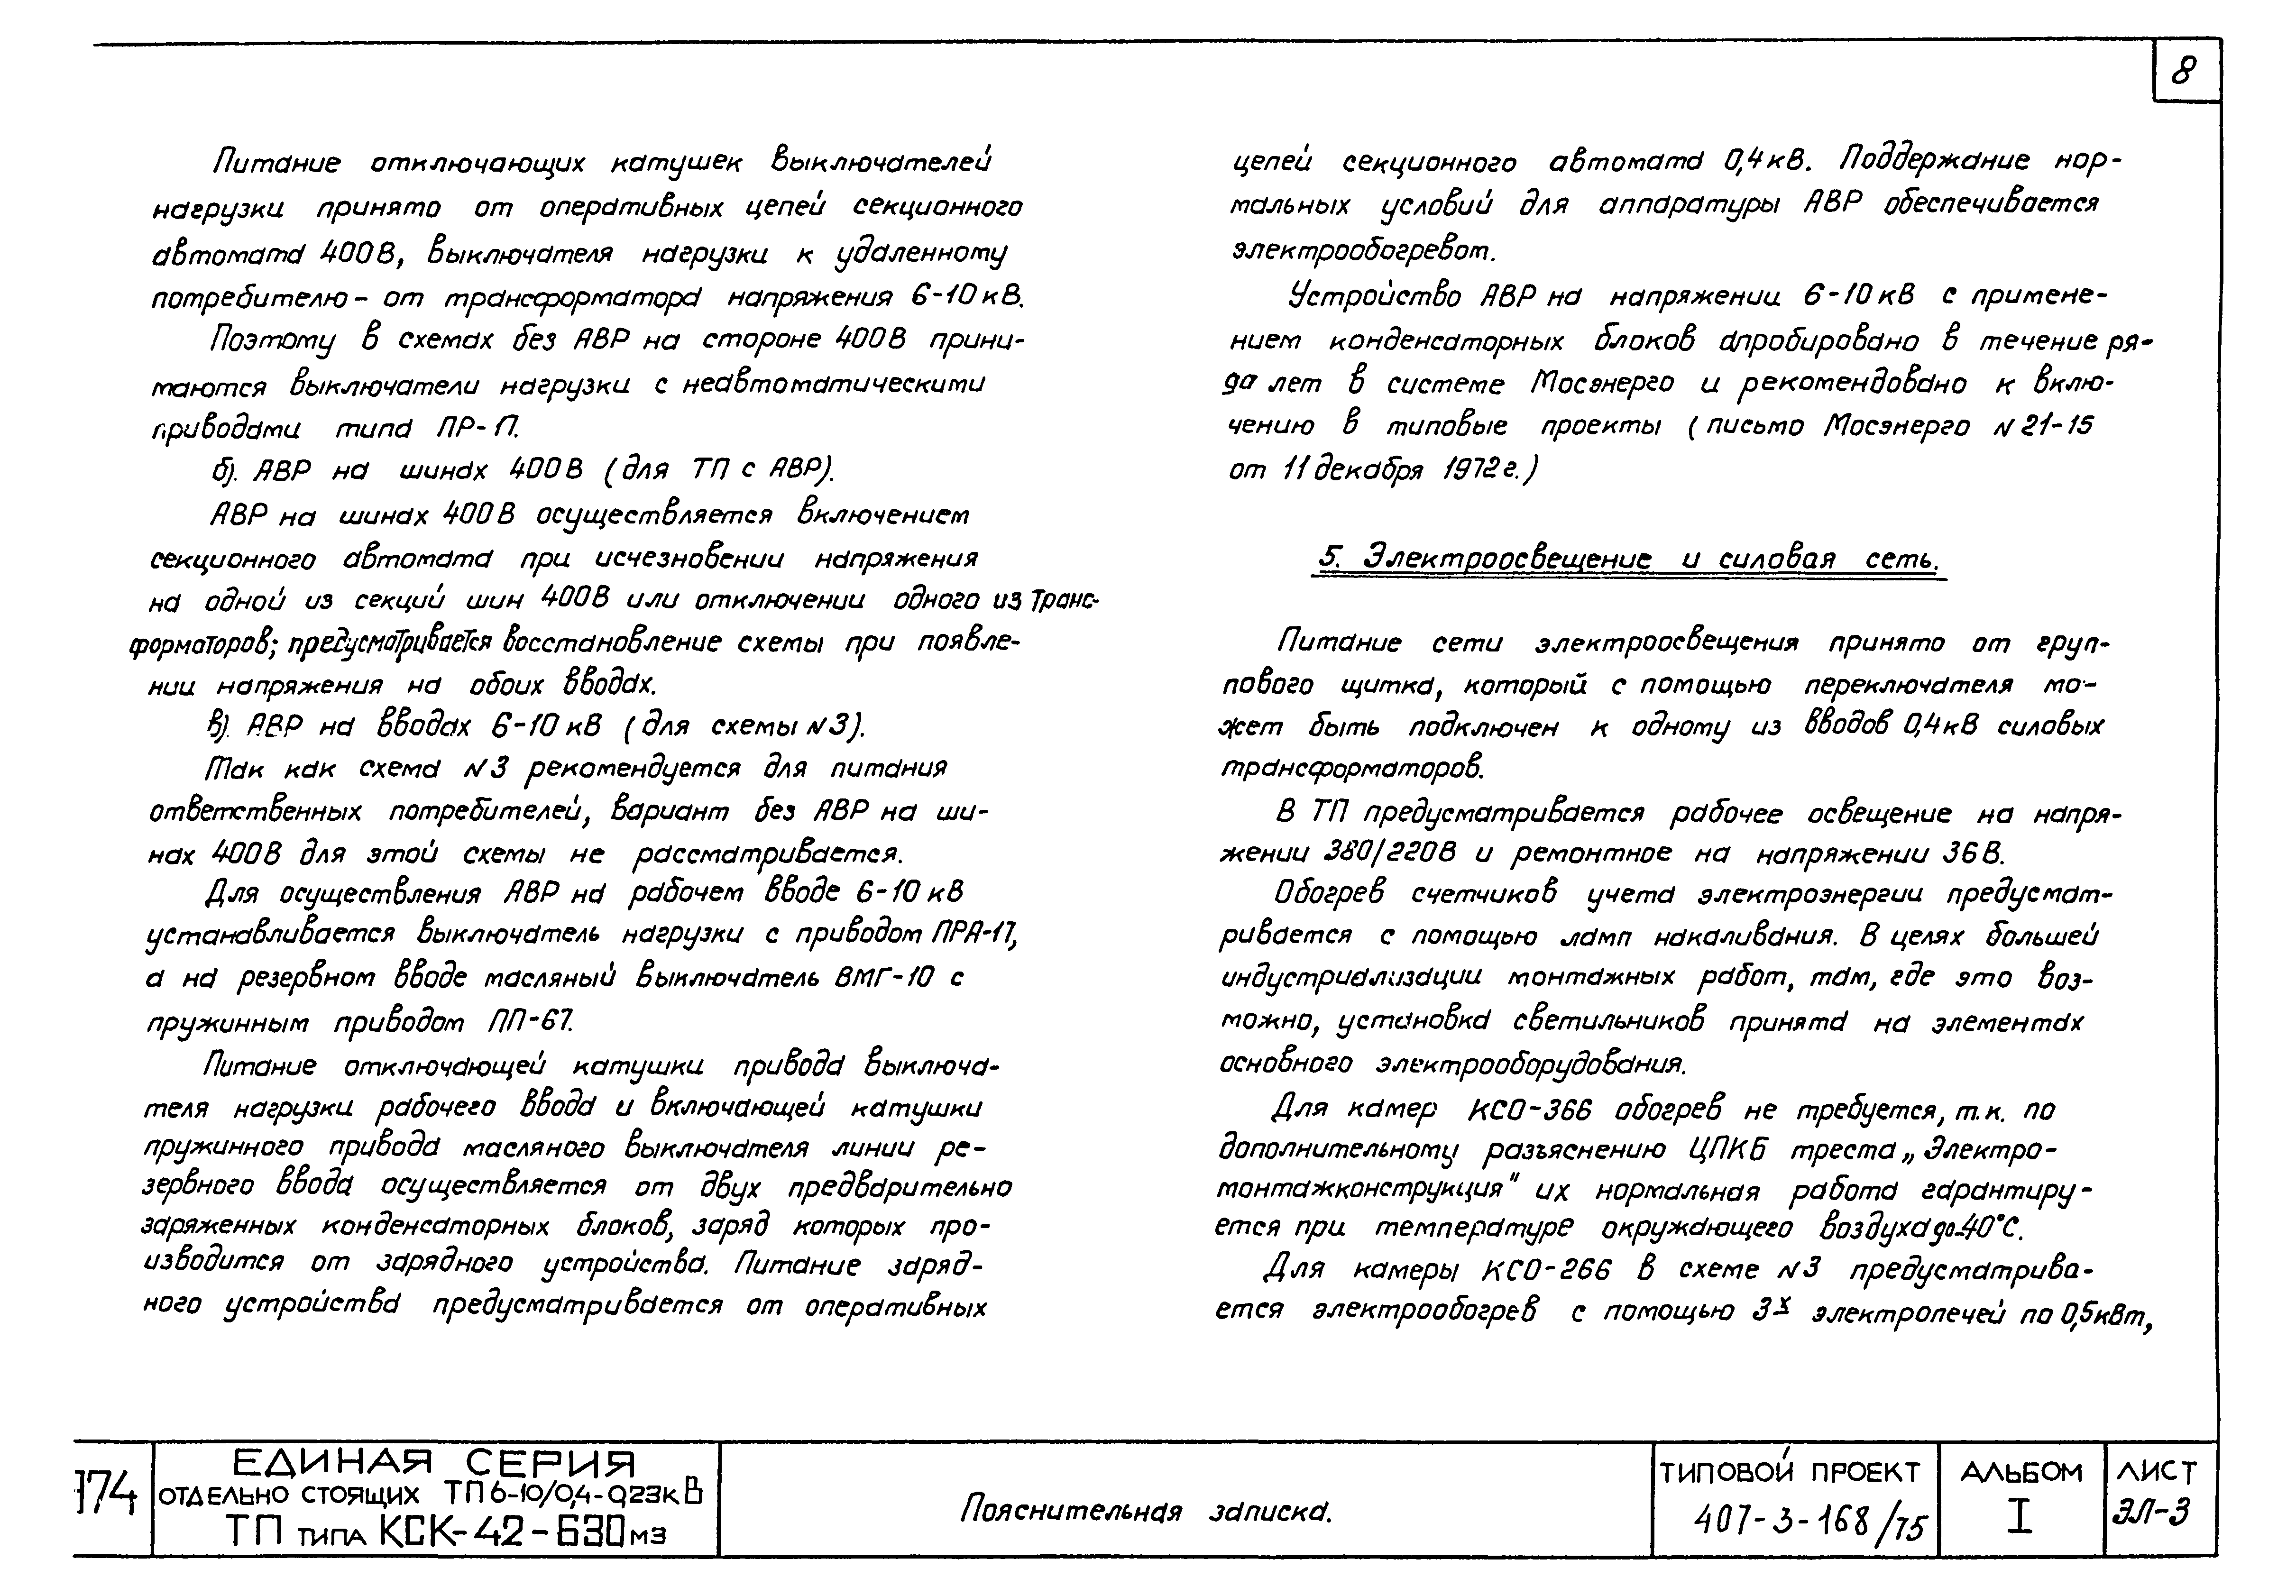 8
Питание отключающих катушек выключателей
нагрузки принято от оперативных цепей секционного
автомата 400В, выключателя нагрузки к удаленному
потребителю - от трансформатора напряжения 6-10кВ.
Поэтому в схемах без АВР на стороне 400В прини-
маются выключатели нагрузки с неавтоматическими
приводами типа ПР-17.
б). АВР на шинах 400В (для ТП с АВР).
АВР на шинах 400В осуществляется включением
секционного автомата при исчезновении напряжения
на одной из секций шин 400В или отключении одного из транс-
форматоров; предусматривается восстановление схемы при появле-
нии напряжения на обоих вводах.
в). АВР на вводах 6-10кВ (для схемы N3).
Так как схема N3 рекомендуется для питания
ответственных потребителей, вариант без АВР на ши-
нах 400В для этой схемы не рассматривается.
Для осуществления АВР на рабочем вводе 6-10кВ
устанавливается выключатель нагрузки с приводом ПРА-17,
а на резервном вводе масляный выключатель ВМГ-10 с
пружинным приводом ПП-67.
Питание отключающей катушки привода выключа-
теля нагрузки рабочего ввода и включающей катушки
пружинного привода масляного выключателя линии ре-
зервного ввода осуществляется от двух предварительно
заряженных конденсаторных блоков, заряд которых про-
изводится от зарядного устройства. Питание заряд-
ного устройства предусматривается от оперативных
цепей секционного автомата 0,4кВ. Поддержание нор-
мальных условий для аппаратуры АВР обеспечивается
электрообогревом.
Устройство АВР на напряжении 6-10кВ с примене-
нием конденсаторных блоков апробировано в течение ря-
да лет в системе Мосэнерго и рекомендовано к вклю-
чению в типовые проекты (письмо Мосэнерго N21-15
от 11 декабря 1972г.)
5. Электроосвещение и силовая сеть.
Питание сети электроосвещения принято от груп-
пового щитка, который с помощью переключателя мо-
жет быть подключен к одному из вводов 0,4кВ силовых
трансформаторов.
В ТП предусматривается рабочее освещение на напря-
жении 380/220В и ремонтное на напряжении 36В.
Обогрев счетчиков учета электроэнергии предусмат-
ривается с помощью ламп накаливания. В целях большей
индустриализации монтажных работ, там, где это воз-
можно, установка светильников принята на элементах
основного электрооборудования.
Для камер КСО-366 обогрев не требуется, т.к. по
дополнительному разъяснению ЦПКБ треста „Электро-
монтажконструкция" их нормальная работа гарантиру-
ется при температуре окружающего воздуха до-40°С.
Для камеры КСО-266 в схеме N3 предусматрива-
ется электрообогрев с помощью 3х электропечей по 0,5кВт,
174
ЕДИНАЯ СЕРИЯ
ОТДЕЛЬНО СТОЯЩИХ ТП 6-10/0,4-0,23кВ
ТП ТИПА КСК-42-630м3
Пояснительная записка.
ТИПОВОЙ ПРОЕКТ
407-3-168/75
АЛЬБОМ
I
ЛИСТ
ЭЛ-3